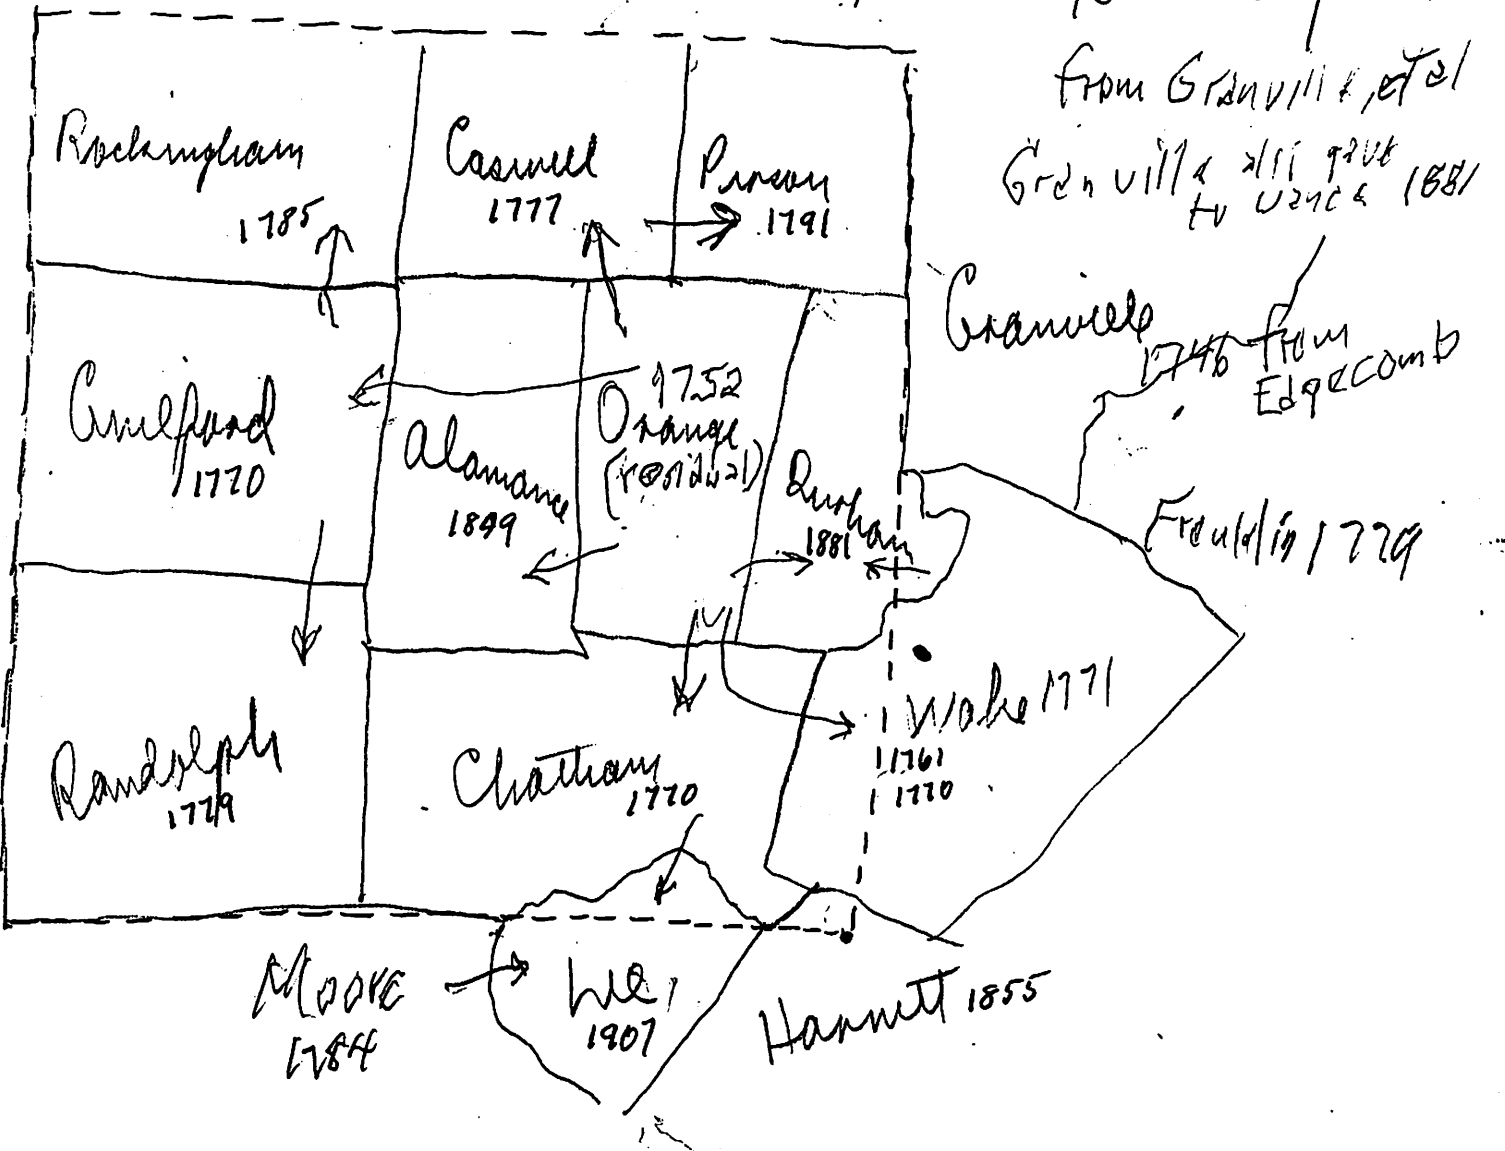 from Granville, et al
Granville also gave
to Vance 1881
Rockingham
1785
Caswell
1777
Person
1791
Granville
1746 from
Edgecomb
Guilford
1770
Alamance
1849
1752
Orange
(residual)
Durham
1881
Franklin 1779
Randolph
1779
Chatham
1770
Wake 1771
1761
1770
Moore
1784
Lee
1907
Harnett 1855